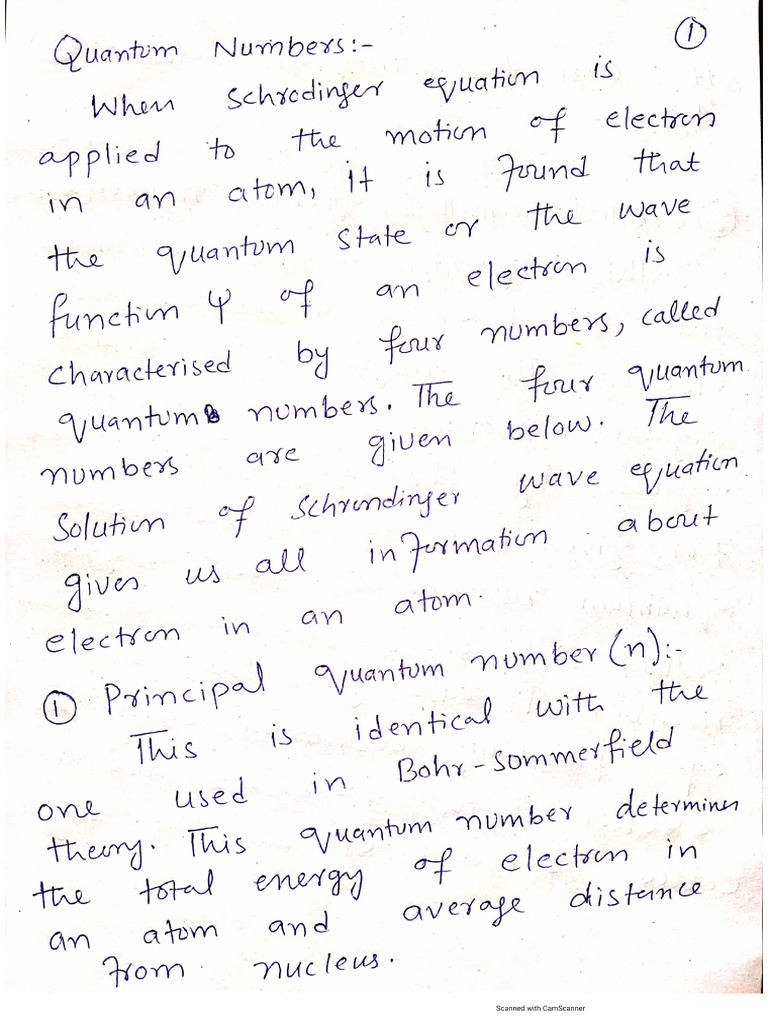 Quantum Numbers:- ①
When Schrodinger equation is
applied to the motion of electron
in an atom, it is found that
the quantum state or the wave
function ψ of an electron is
characterised by four numbers, called
quantum numbers. The four quantum
numbers are given below. The
Solution of Schrondinger wave equation
gives us all information about
electron in an atom.
① Principal quantum number (n):-
This is identical with the
one used in Bohr-Sommerfield
theory. This quantum number determines
the total energy of electron in
an atom and average distance
from nucleus.
Scanned with CamScanner